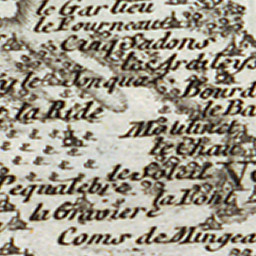 le Garlieu
le Fourneau
Cinq Sadons
les Ardileys
y le
Bourd
la Ride
le Ba
Moulinet
le Chau
le Soleil
Pequalebre
la Pont
la Graviere
Coms de Mingea